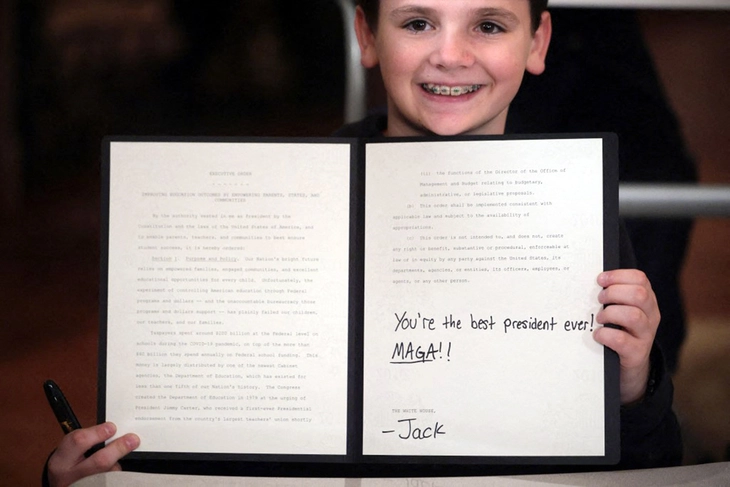 EXECUTIVE ORDER
- - - - - - -
IMPROVING EDUCATION OUTCOMES BY EMPOWERING PARENTS, STATES, AND
COMMUNITIES
By the authority vested in me as President by the
Constitution and the laws of the United States of America, and
to enable parents, teachers, and communities to best ensure
student success, it is hereby ordered:
Section 1. Purpose and Policy. Our Nation's bright future
relies on empowered families, engaged communities, and excellent
educational opportunities for every child. Unfortunately, the
experiment of controlling American education through Federal
programs and dollars -- and the unaccountable bureaucracy those
programs and dollars support -- has plainly failed our children,
our teachers, and our families.
Taxpayers spent around $200 billion at the Federal level on
schools during the COVID-19 pandemic, on top of the more than
$60 billion they spend annually on Federal school funding. This
money is largely distributed by one of the newest Cabinet
agencies, the Department of Education, which has existed for
less than one fifth of our Nation's history. The Congress
created the Department of Education in 1979 at the urging of
President Jimmy Carter, who received a first-ever Presidential
endorsement from the country's largest teachers' union shortly
(ii) the functions of the Director of the Office of
Management and Budget relating to budgetary,
administrative, or legislative proposals.
(b) This order shall be implemented consistent with
applicable law and subject to the availability of
appropriations.
(c) This order is not intended to, and does not, create
any right or benefit, substantive or procedural, enforceable at
law or in equity by any party against the United States, its
departments, agencies, or entities, its officers, employees, or
agents, or any other person.
You're the best president ever!
MAGA!!
THE WHITE HOUSE,
-Jack